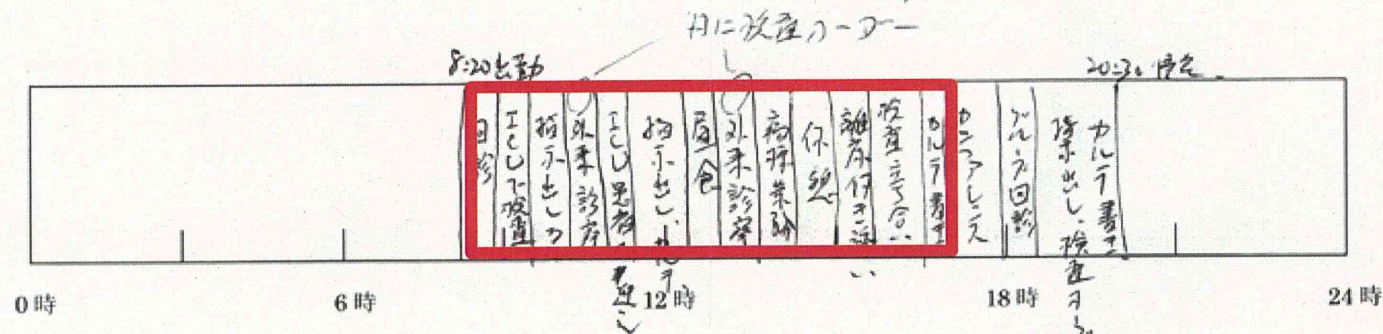 月に検査オーダー
8:20出勤
20:30 帰宅
回診
ICUで検査
指示出し
外来診察
ICU患者
指示出し、
昼食
外来診察
病棟業務
休憩
離床付き添い
検査立ち合い
カルテ書き
カンファレンス
グループ回診
指示出し、検査オーダー
カルテ書き
0時
6時
12時
18時
24時